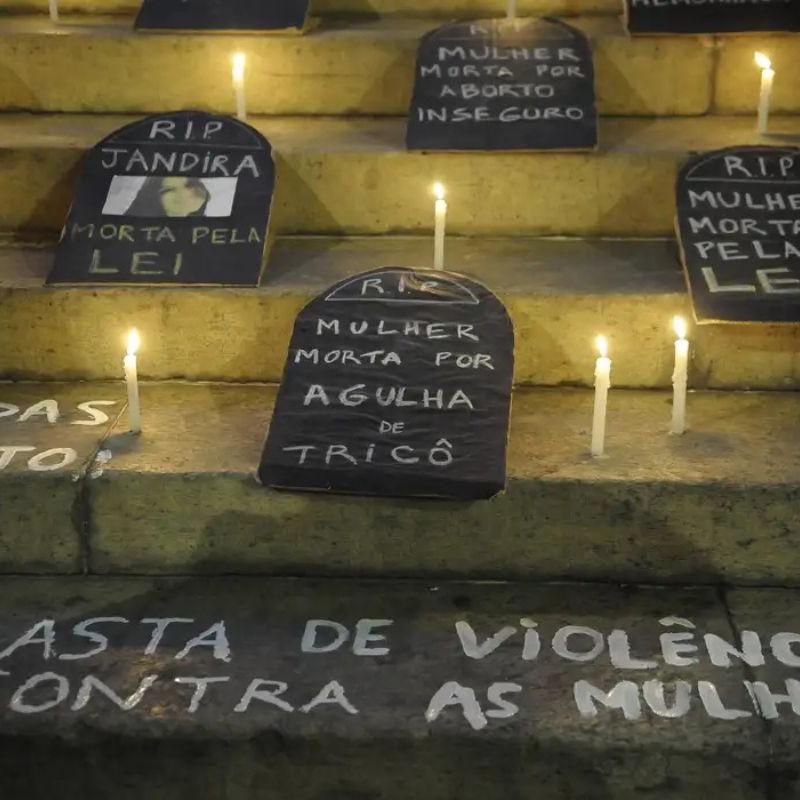 R.I.P
MULHER
MORTA POR
ABORTO
INSEGURO
R.I.P
JANDIRA
MORTA PELA
LEI
R.I.P
MULHE
MORTA
PELA
LE
R.I.P
MULHER
MORTA POR
AGULHA
DE
TRICÔ
DAS
TO!
ASTA DE VIOLÊNC
CONTRA AS MULH